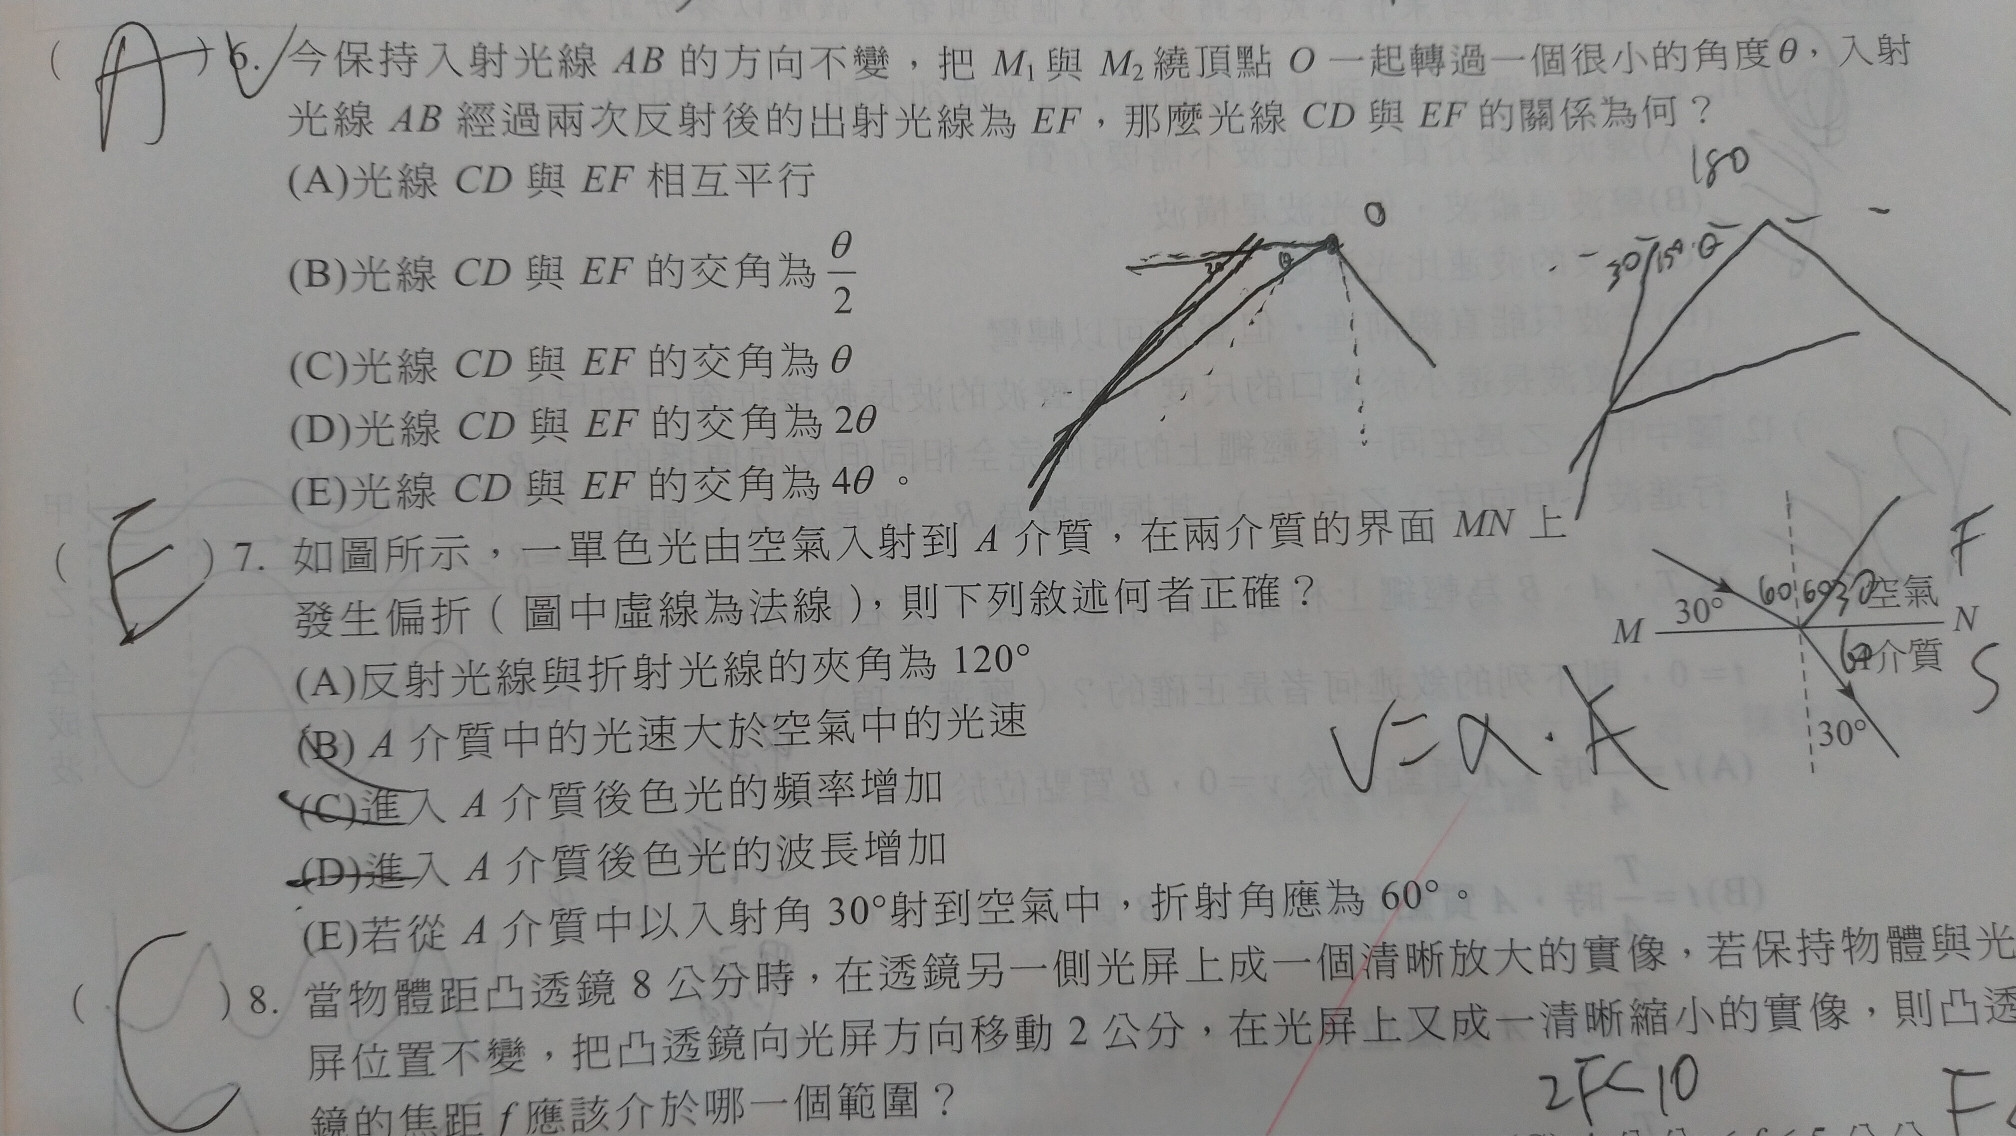 ( A ) 6. 今保持入射光線 AB 的方向不變，把 M₁ 與 M₂ 繞頂點 O 一起轉過一個很小的角度θ，入射
光線 AB 經過兩次反射後的出射光線為 EF，那麼光線 CD 與 EF 的關係為何？
180
(A)光線 CD 與 EF 相互平行
O
(B)光線 CD 與 EF 的交角為 θ/2
30 θ
(C)光線 CD 與 EF 的交角為 θ
(D)光線 CD 與 EF 的交角為 2θ
(E)光線 CD 與 EF 的交角為 4θ。
( E ) 7. 如圖所示，一單色光由空氣入射到 A 介質，在兩介質的界面 MN 上
發生偏折（圖中虛線為法線），則下列敘述何者正確？
F
60 60 30 空氣
M 30° N
60 介質 S
30°
(A)反射光線與折射光線的夾角為 120°
(B) A 介質中的光速大於空氣中的光速
(C)進入 A 介質後色光的頻率增加
(D)進入 A 介質後色光的波長增加
(E)若從 A 介質中以入射角 30°射到空氣中，折射角應為 60°。
( C ) 8. 當物體距凸透鏡 8 公分時，在透鏡另一側光屏上成一個清晰放大的實像，若保持物體與光
屏位置不變，把凸透鏡向光屏方向移動 2 公分，在光屏上又成一清晰縮小的實像，則凸透
鏡的焦距 f 應該介於哪一個範圍？
2F<10